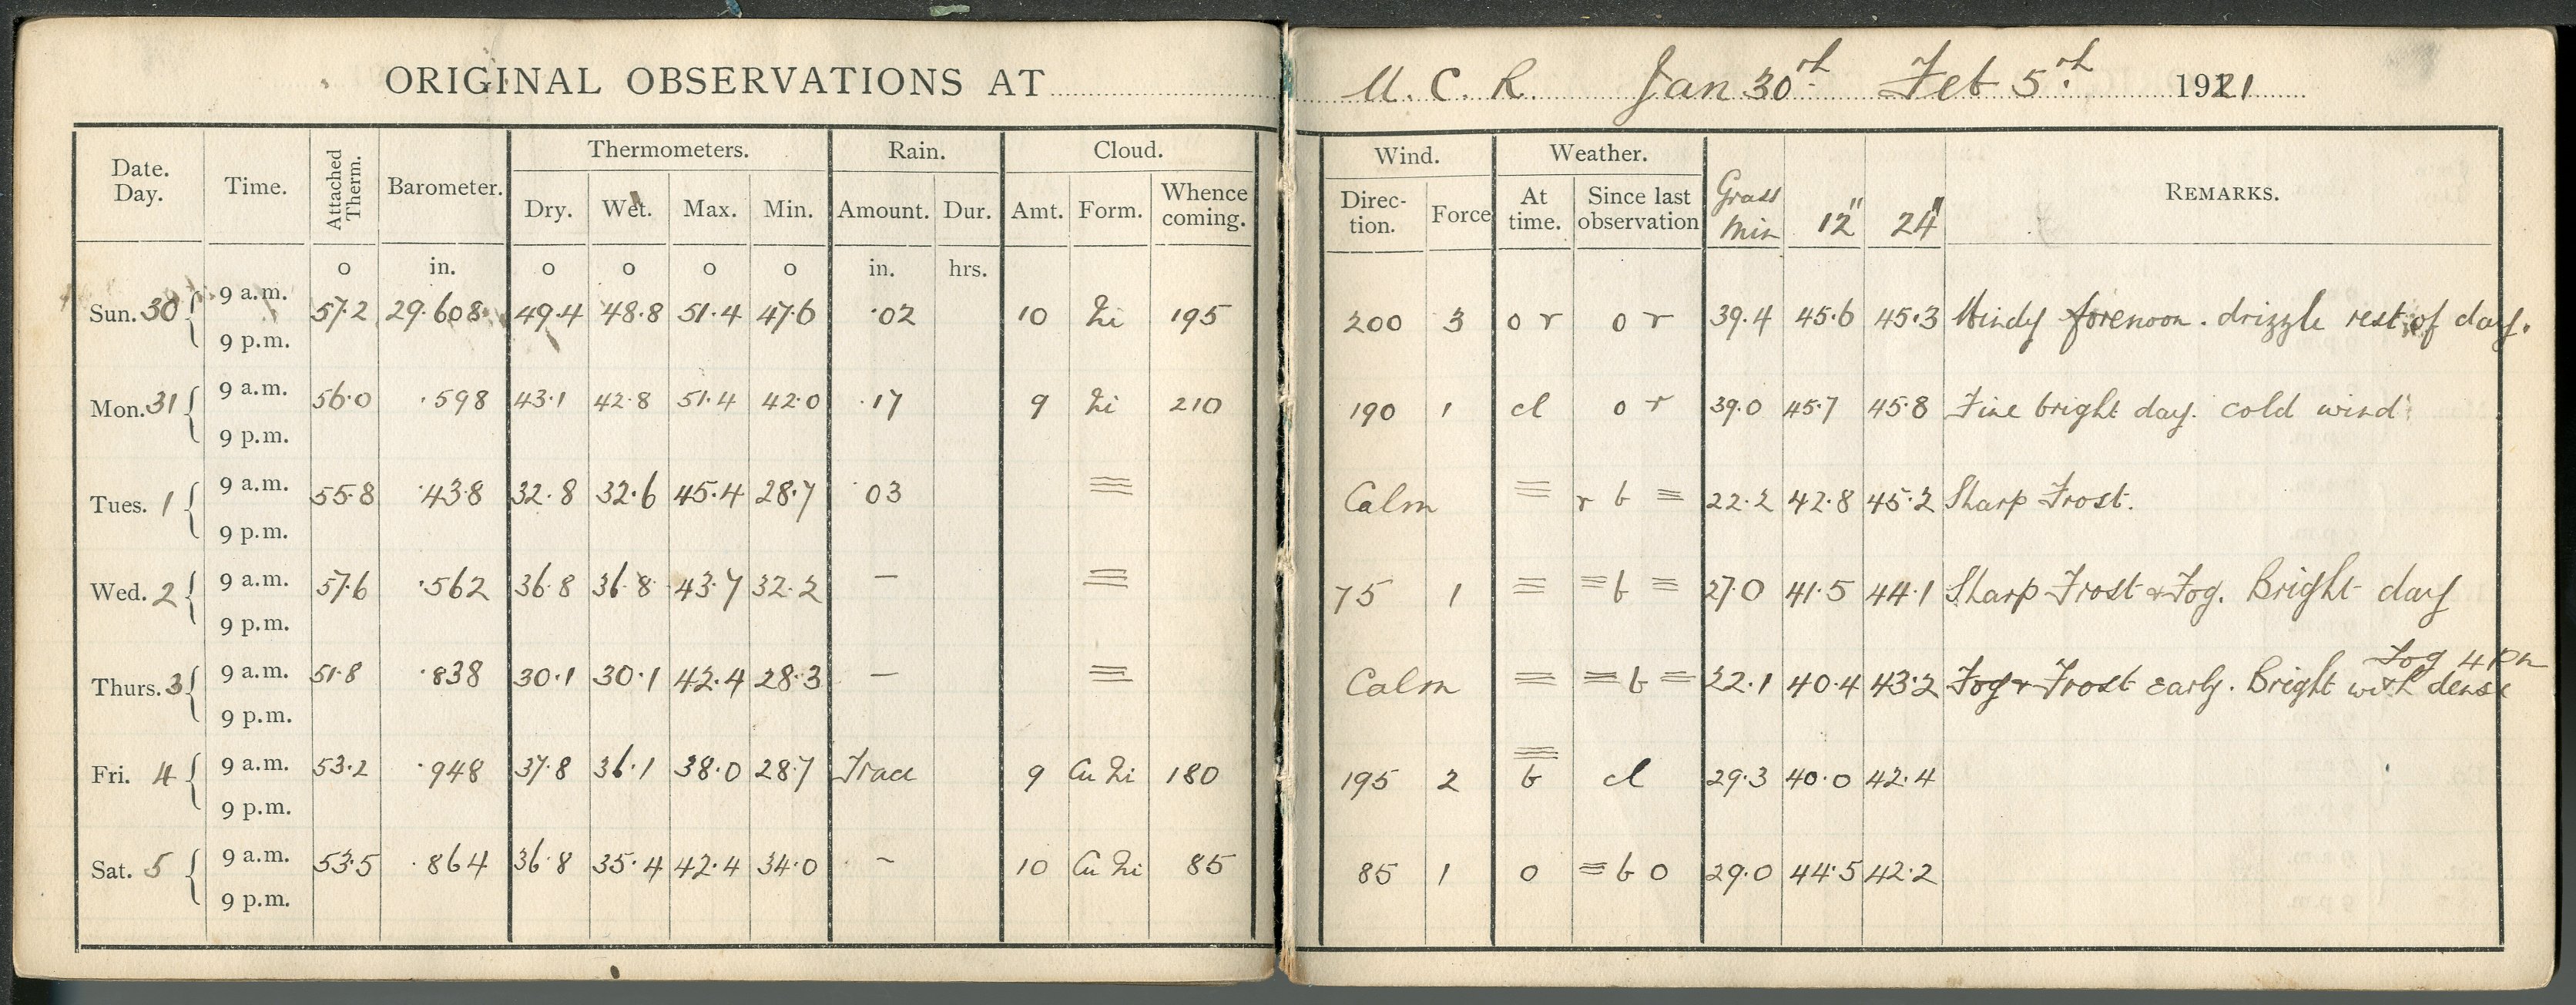 ORIGINAL OBSERVATIONS AT U. C. R. Jan 30th Feb 5th 1921
Date. Day. Time. Attached Therm. Barometer. Thermometers. Rain. Cloud. Wind. Weather. Grass Min 12" 24" REMARKS.
Dry. Wet. Max. Min. Amount. Dur. Amt. Form. Whence coming. Direc- tion. Force At time. Since last observation
o in. o o o o in. hrs.
Sun. 30 9 a.m. 57.2 29.608 49.4 48.8 51.4 47.6 .02 10 Ni 195 200 3 o r o r 39.4 45.6 45.3 Windy forenoon. drizzle rest of day.
9 p.m.
Mon. 31 9 a.m. 56.0 .598 43.1 42.8 51.4 42.0 .17 9 Ni 210 190 1 cl o r 39.0 45.7 45.8 Fine bright day. cold wind
9 p.m.
Tues. 1 9 a.m. 55.8 .438 32.8 32.6 45.4 28.7 03 ≡ Calm ≡ r b ≡ 22.2 42.8 45.2 Sharp Frost.
9 p.m.
Wed. 2 9 a.m. 57.6 .562 36.8 36.8 43.7 32.2 — ≡ 75 1 ≡ ≡ b ≡ 27.0 41.5 44.1 Sharp Frost & Fog. Bright day
9 p.m.
Thurs. 3 9 a.m. 51.8 .838 30.1 30.1 42.4 28.3 — ≡ Calm ≡ ≡ b ≡ 22.1 40.4 43.2 Fog & Frost early. Bright with dense
Fog 4 pm
9 p.m.
Fri. 4 9 a.m. 53.2 .948 37.8 36.1 38.0 28.7 Trace 9 Cu Ni 180 195 2 ≡ b cl 29.3 40.0 42.4
9 p.m.
Sat. 5 9 a.m. 53.5 .864 36.8 35.4 42.4 34.0 – 10 Cu Ni 85 85 1 o ≡ b o 29.0 44.5 42.2
9 p.m.